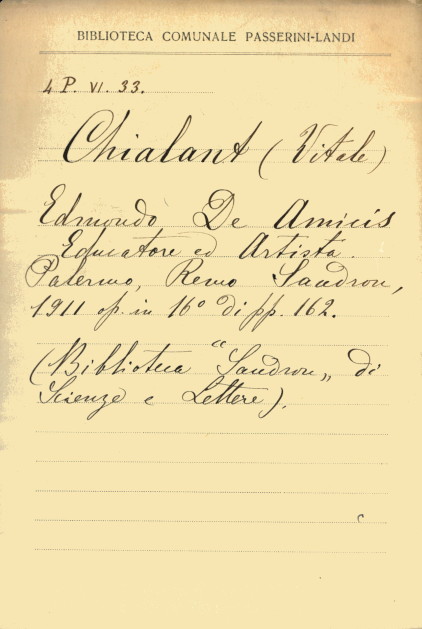 BIBLIOTECA COMUNALE PASSERINI-LANDI
4 P. VI. 33.
Chialant (Vitale)
Edmondo De Amicis
Educatore ed Artista.
Palermo, Remo Sandron,
1911 op. in 16° di pp. 162.
(Biblioteca "Sandron„ di
Scienze e Lettere).